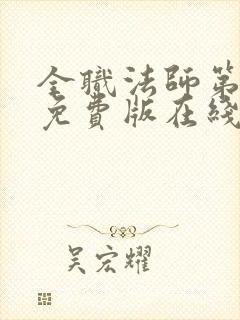 全職法師第
免費版在綫
吴宏耀